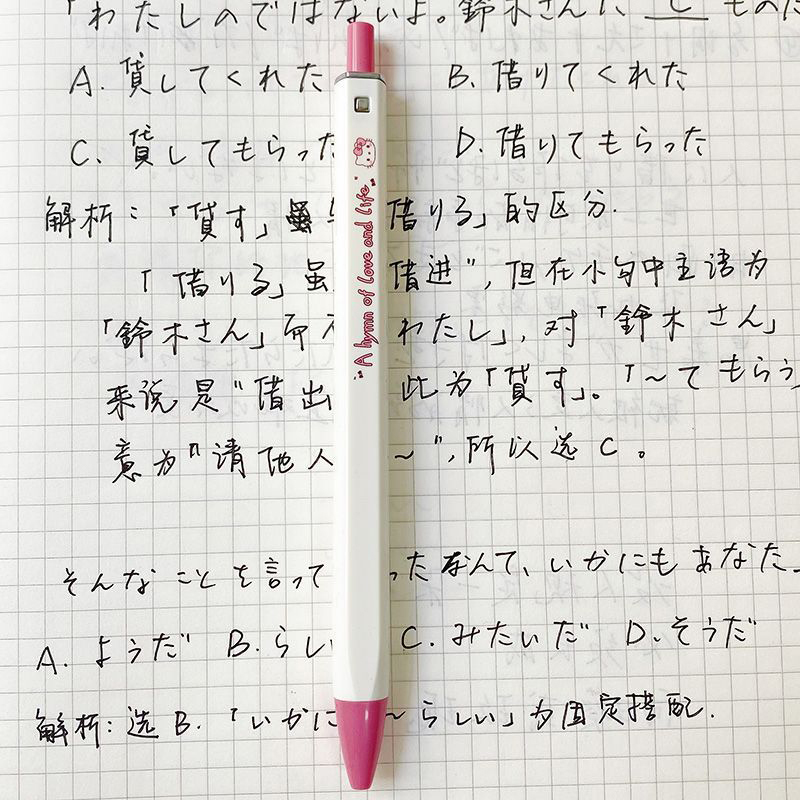 「わたしのではないよ。鈴木さんに C もの
A. 貸してくれた B. 借りてくれた
C. 貸してもらった D. 借りてもらった
解析:「貸す」 借りる」的区分.
「借りる」虽 借进",但在小句中主语为
「鈴木さん」而 わたし」,对「鈴木さん」
来说是"借出 此为「貸す」。「~てもらう
意为"请他人 ~",所以选C。
そんなことを言って ったなんて、いかにもあなた
A. ようだ B. らし C. みたいだ D. そうだ
解析:选B.「いかに ~らしい」为固定搭配.
A hymn of love and life